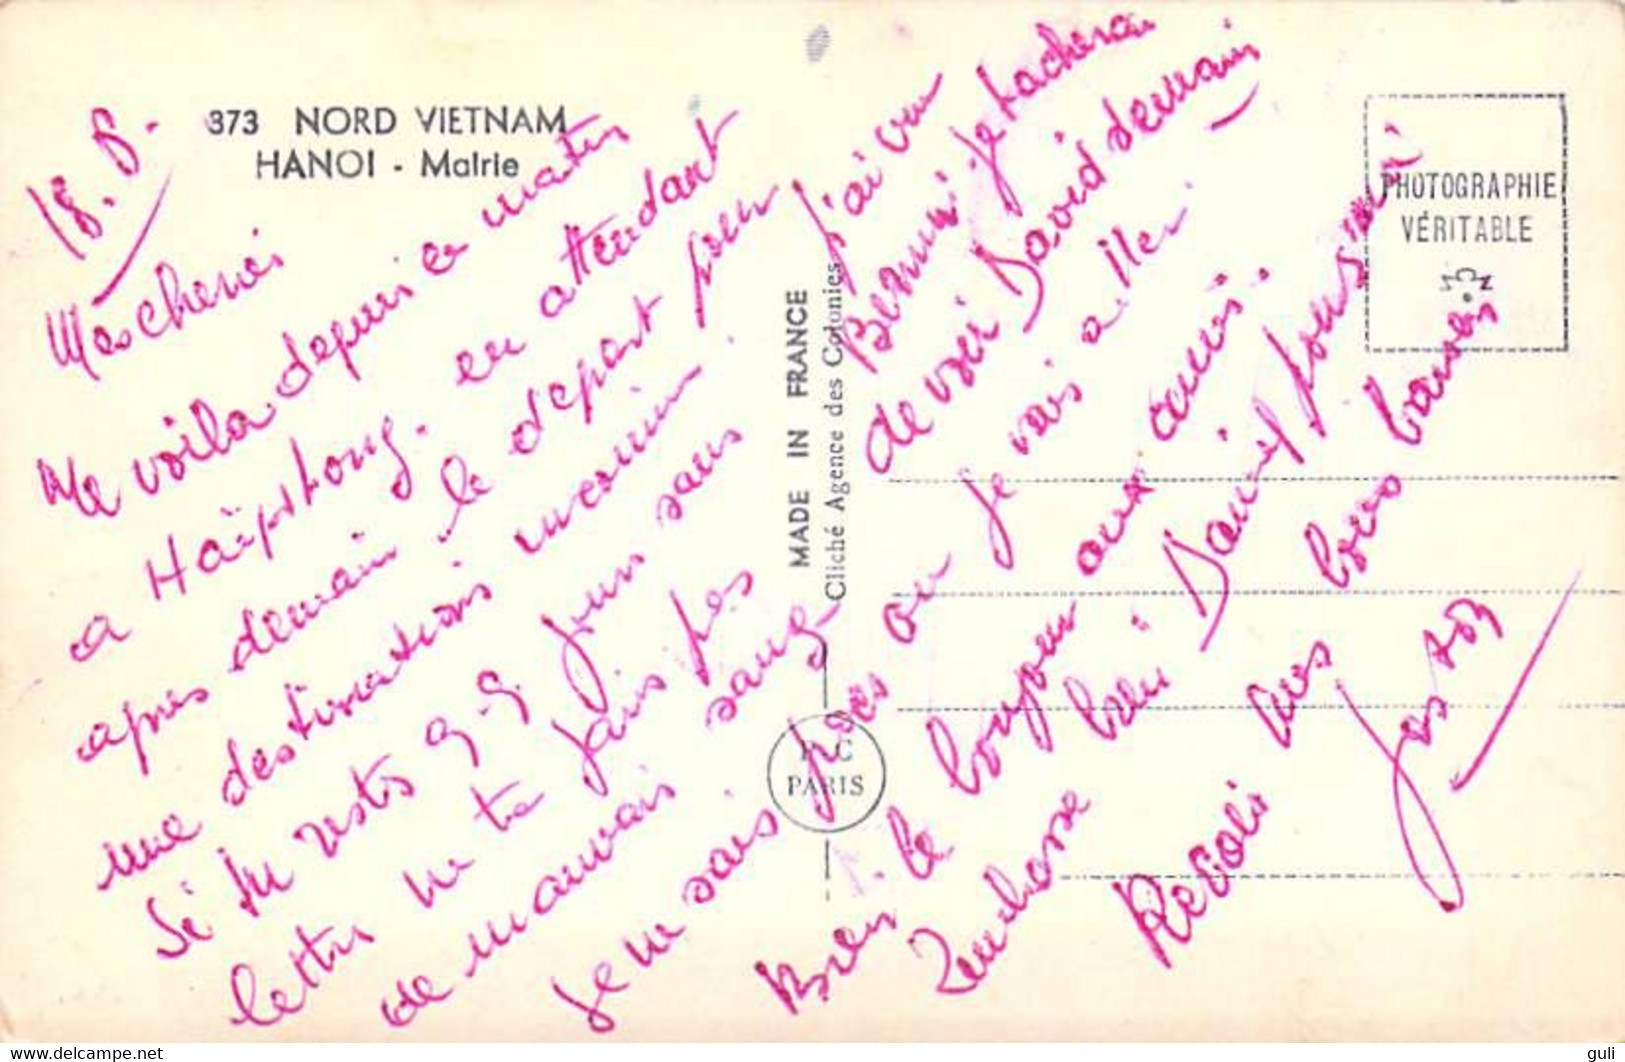 373 NORD VIETNAM
HANOI - Mairie
18.8.
Mes cheries
Me voila depuis ce matin
a Haïphong. en attendant
apres demain le depart pour
une destinations inconnu.
Si tu restes q.q. jours sans
lettre ne te fais pas
de mauvais sang
je ne sais pas ou je vais aller
J'ai vu
Bennui. je tacherai
de voir David demain
Bien le bonjour aux amis.
Embrasse bien Daniel pour moi
Recois mes bons baisers
Gaston
MADE IN FRANCE
Cliché Agence des Colonies
PARIS
PHOTOGRAPHIE
VÉRITABLE
guli